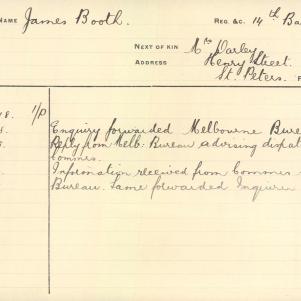 NAME James Booth. REG. &C. 14th Ba
NEXT OF KIN Mrs Darley
ADDRESS Henry Street.
St. Peters.
8. 1/P Enquiry forwarded Melbourne Bure
Reply from Melb. Bureau advising dispat
Commrs.
Information received from Commrs
Bureau. Same forwarded Inquirer